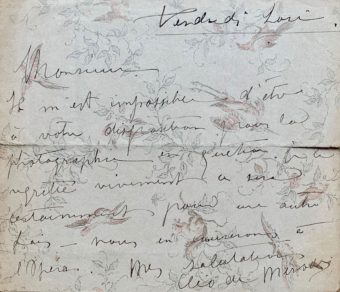 Vendredi Soir.
Monsieur.
Il m'est impossible d'être
à votre disposition pour la
photographie en question. Je le
regrette vivement ce sera
certainement pour une autre
fois - nous en causerons à
l'Opéra. Mes Salutations
Cléo de Mérode